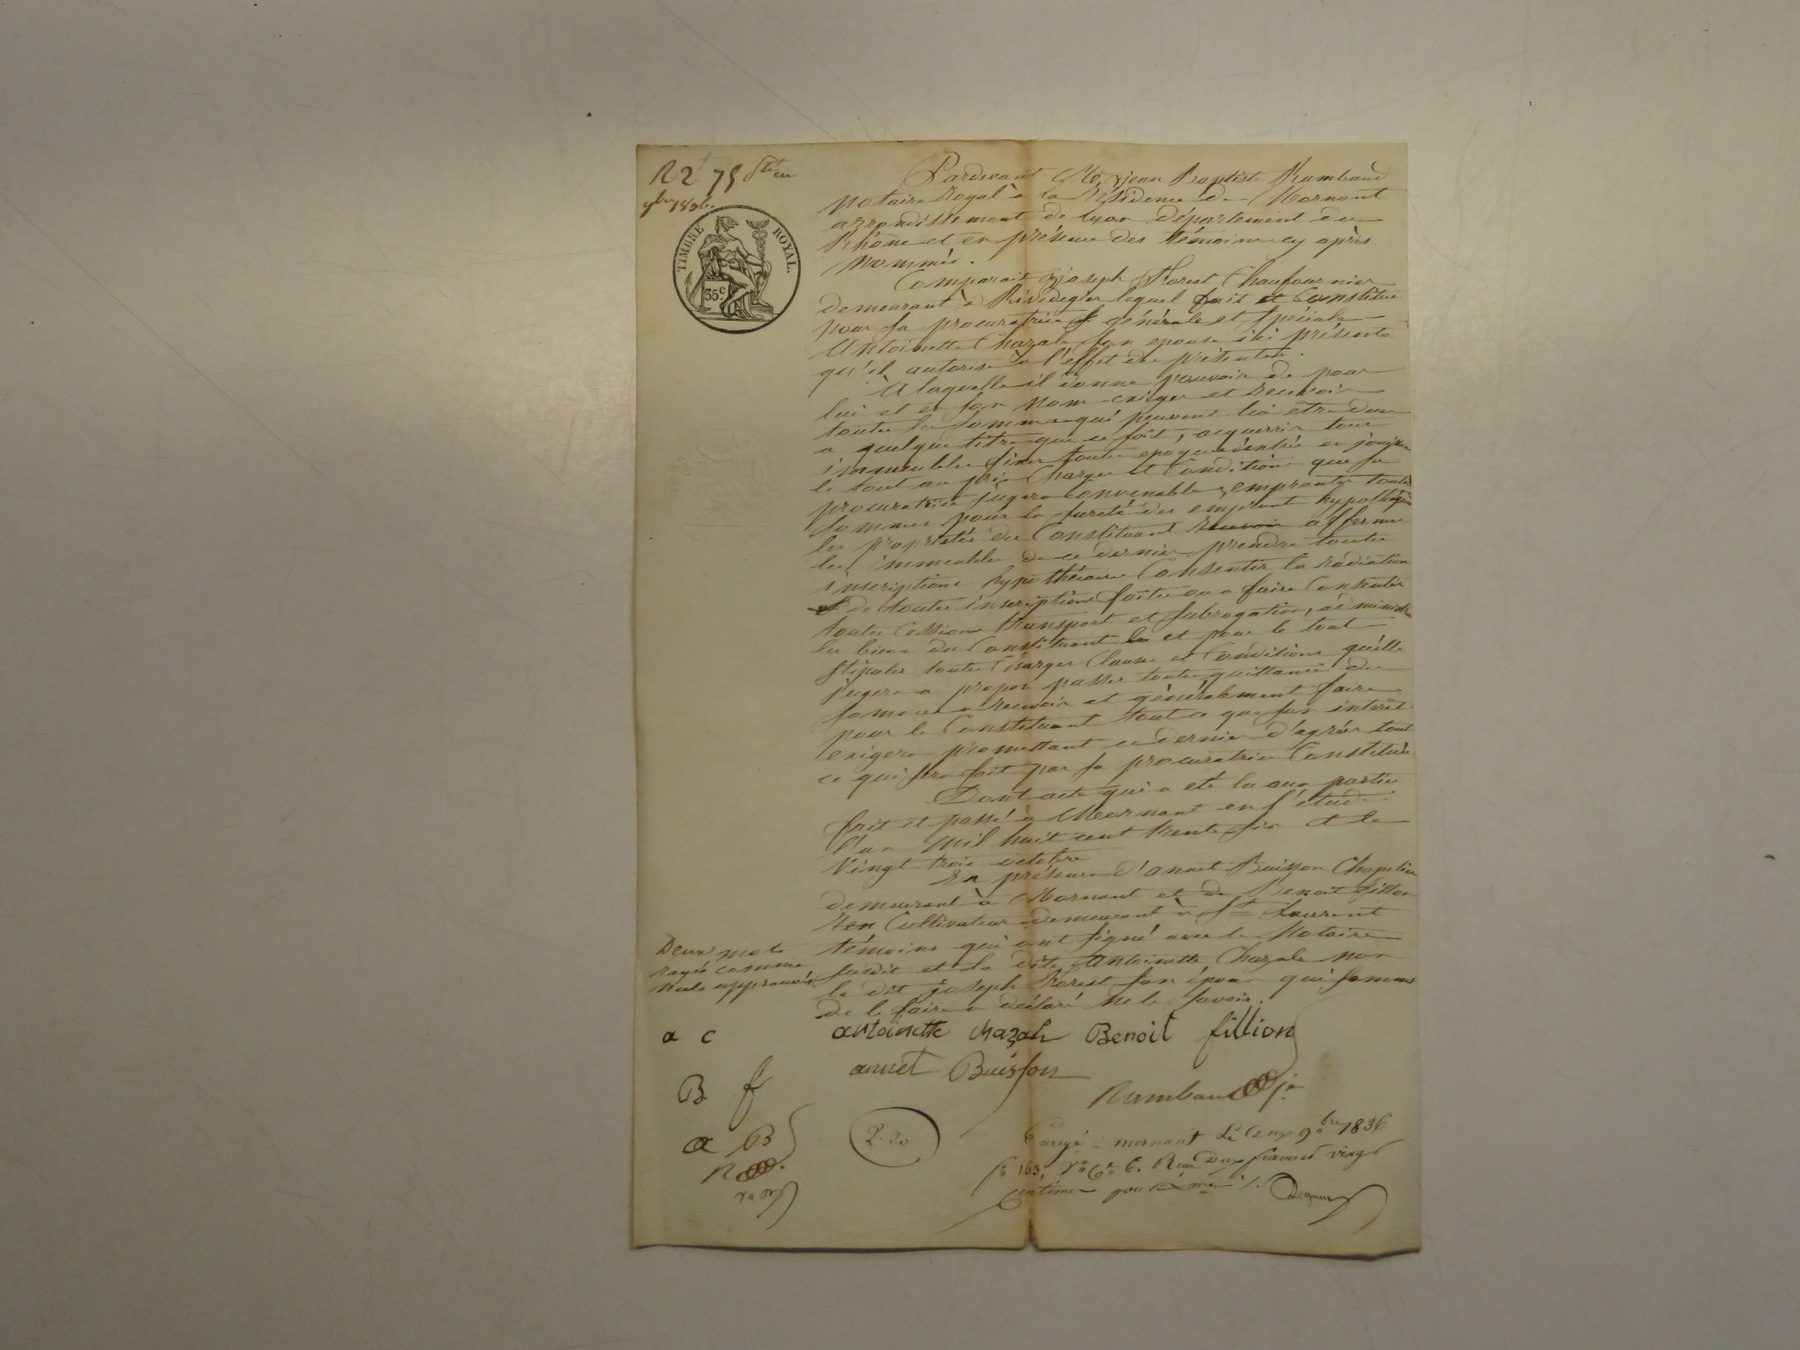 R 2 75
9bre 1836
TIMBRE ROYAL.
35c
Pardevant Me jean Baptiste Rambaud
notaire Royal à la Résidence de Mornant
arrondissement de Lyon département du
Rhône et en présence des témoins cy après
nommés.
Comparait joseph Florest Chaufournier
demeurant à Rivedegier lequel fait et Constitue
pour sa procuratrice générale et spéciale
Antoinette Chazale son epouse ici présente
qu'il autorise à l'effet des présentes.
A laquelle il donne pouvoir de pour
lui et en son nom exiger et recevoir
toutes les sommes qui peuvent lui etre dues
a quelque titre que ce soit, acquerir tous
immeubles fixer toutes epoques d'entrée en jouissance
le tout au prix Charges et Conditions que sa
procuratrice jugera convenable, emprunter toutes
sommes pour la sureté des emprunt hypothéquer
les propriétés du Constituant recevoir affermer
les immeubles de ce dernier prendre toutes
inscriptions hypothécaires Consentir la radiation
et de toutes inscriptions faites ou a faire Consentir
toutes Cessions transport et subrogation, administrer
les biens du Constituant la et pour le tout
stipuler toutes Charges Clauses et Conditions qu'elle
jugera a propos passer toutes quittances des
sommes a recevoir et généralement faire
pour le Constituant tout ce que son intérêt
exigera promettant ce dernier d'agréer tout
ce qui sera fait par sa procuratrice Constituée
Dont acte qui a eté lu aux parties
fait et passé à Mornant en l'étude
l'an mil huit cent trente six et le
vingt trois octobre
En présence d'annet Buisson Chapelier
demeurant à Mornant et de Benoit fillion
Cultivateur demeurant à St Laurent
témoins qui ont signé avec le Notaire
susdit et la dite Antoinette Chazale non
le dit joseph Florest son époux qui sommé
de le faire a déclaré ne le savoir.
Deux mots
rayés comme
nuls approuvés
a c
antoinette chazale Benoit fillion
B f
annet Buisson
Rambaud je
a B
R
2.20
Enregé à mornant Le deux 9bre 1836
fo 163, Vo Ce 6. Reçu Deux francs vingt
centimes pour